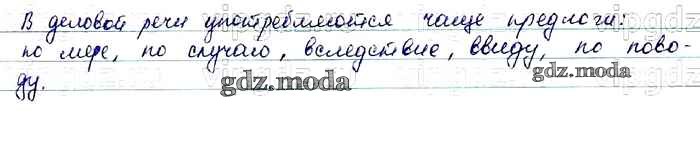 В деловой речи употребляются чаще предлоги:
по мере, по случаю, вследствие, ввиду, по пово-
ду.
gdz.moda
gdz.moda